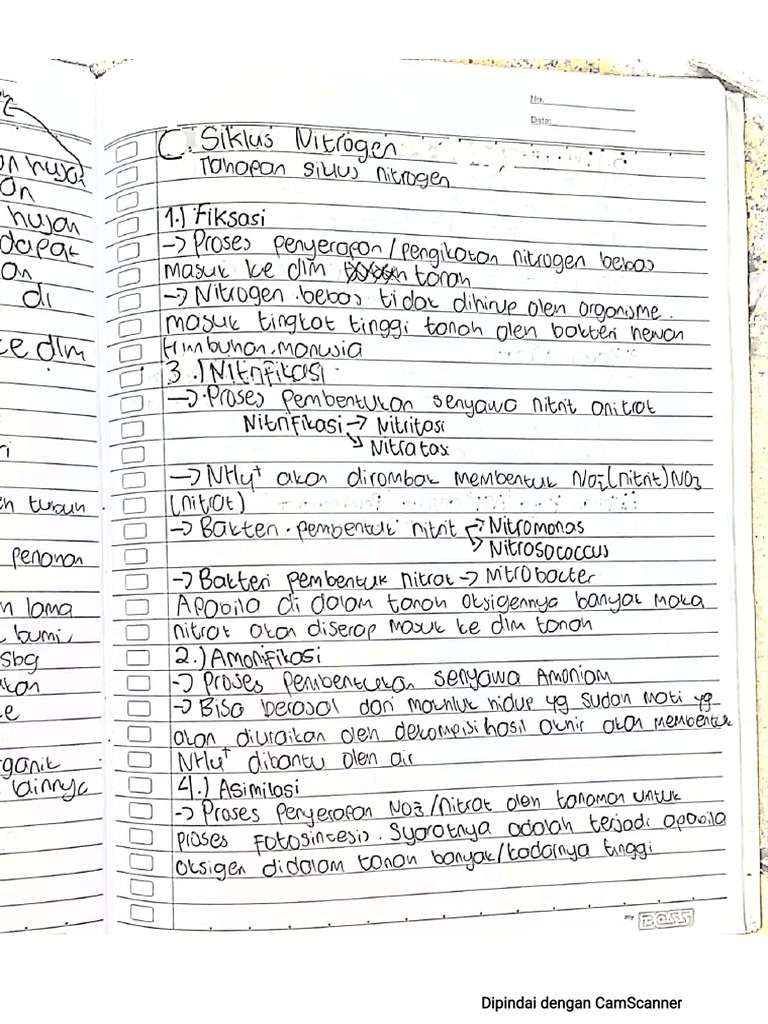 No.
Date:
C. Siklus Nitrogen
Tahapan siklus nitrogen
1.) Fiksasi
-> Proses penyerapan/pengikatan nitrogen bebas
masuk ke dlm tanah
-> Nitrogen bebas tidak dihirup oleh organisme.
masuk tingkat tinggi tanah oleh bakteri hewan
tumbuhan, manusia
3.) Nitrifikasi
-> Proses pembentukan senyawa nitrit
Nitrifikasi -> Nitritasi
↘ Nitratasi
-> NH4+ akan dirombak membentuk NO2- (nitrit) NO3
(nitrat)
-> Bakteri pembentuk nitrit -> Nitromonas
-> Nitrosococcus
-> Bakteri pembentuk nitrat -> Nitrobacter
Apabila di dalam tanah oksigennya banyak maka
nitrat akan diserap masuk ke dlm tanah
2.) Amonifikasi
-> Proses pembentukan senyawa Amoniam
-> Bisa berasal dari makhluk hidup yg sudah mati yg
akan diuraikan oleh dekompisi hasil akhir akan membentuk
NH4+ dibantu oleh air
4.) Asimilasi
-> Proses Penyerapan NO3-/nitrat oleh tanaman untuk
proses fotosintesis. Syaratnya adalah terjadi apabila
oksigen didalam tanah banyak/kadarnya tinggi
BOSS
an hujan
hujan
dapat
an
di
ke dlm
turun
penanan
lama
bumi,
sbg
rganik
lainnya
Dipindai dengan CamScanner